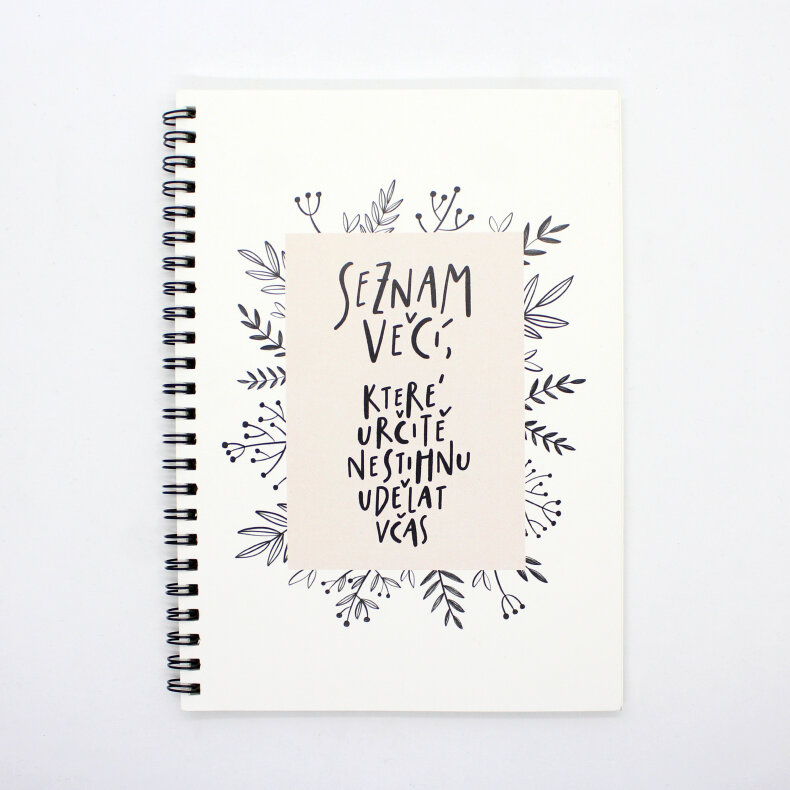 SEZNAM
VEČÍ,
KTERÉ
URČITĚ
NESTIHNU
UDĚLAT
VČAS